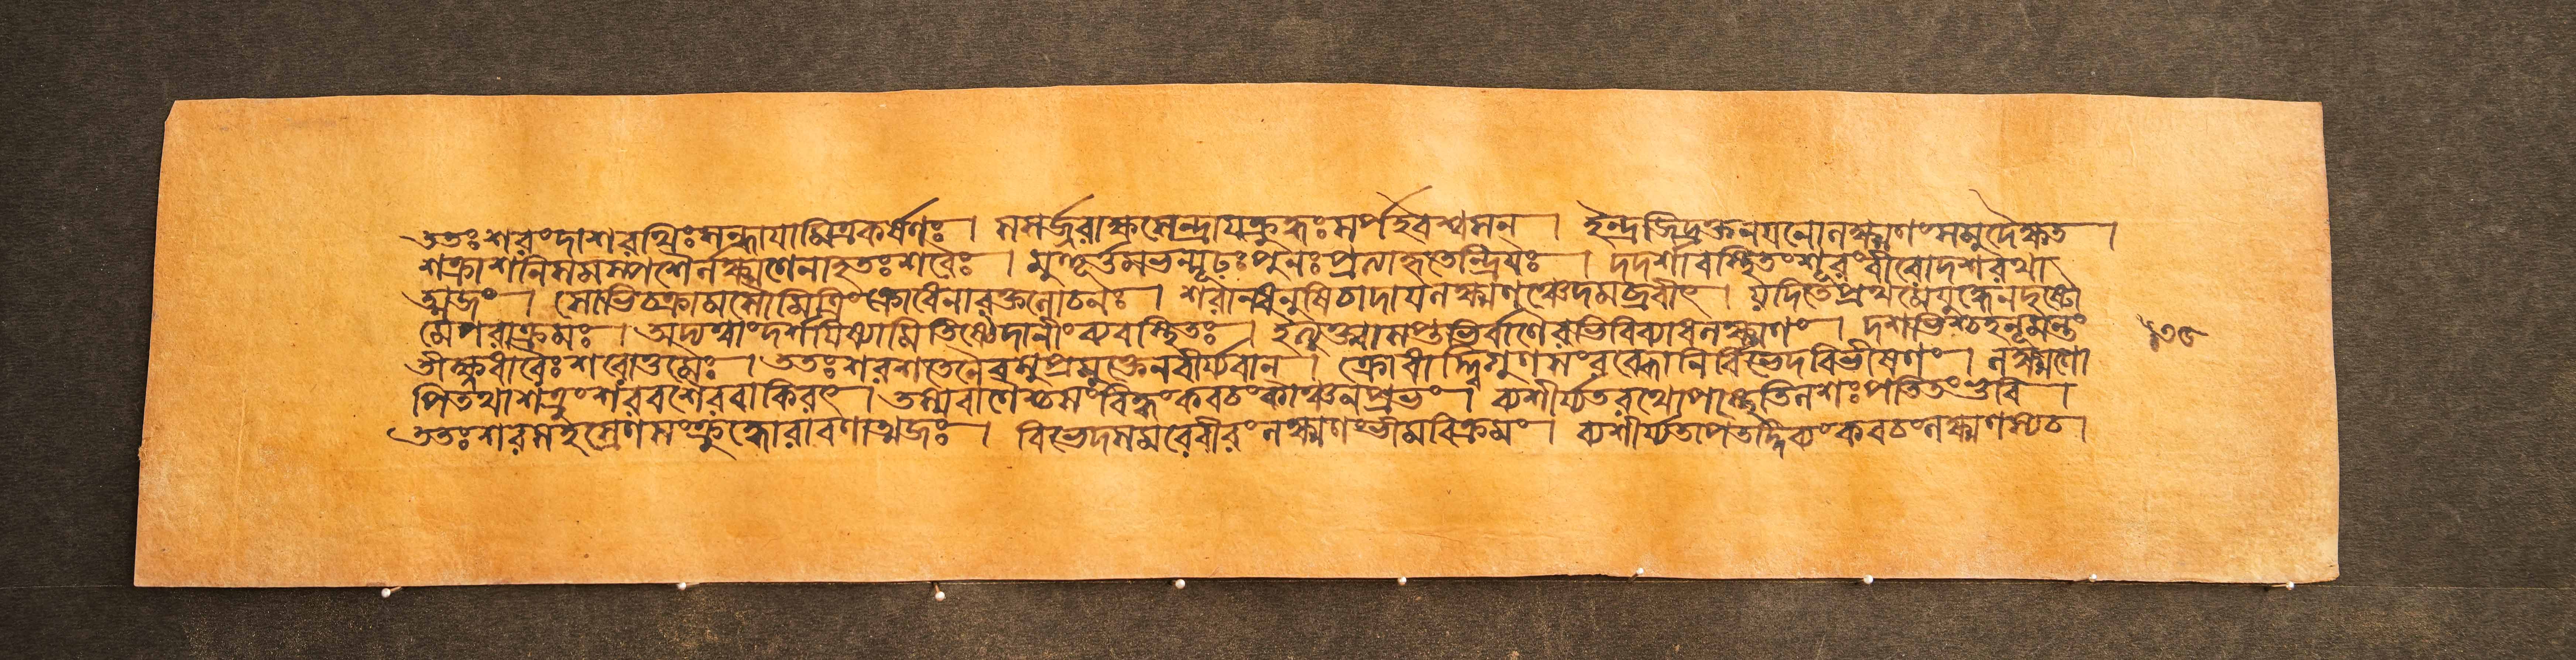 ততঃশরংদাশরথিঃসন্ধায়ামিত্রকর্ষণঃ। সসর্জ্জরাক্ষসেন্দ্রায়ক্রুদ্ধঃসর্পইবশ্বসন্। ইন্দ্রজিদ্রক্তনয়নোলক্ষ্মণংসমুদৈক্ষত।
শক্রাশনিসমস্পর্শৈর্লক্ষ্মণেনাহতঃশরৈঃ। মুহূর্ত্তমভবন্মূঢ়ঃপুনঃপ্রত্যাহৃতেন্দ্রিয়ঃ। দদর্শাবস্থিতংশূরংবীরোদশরথা
ত্মজং। সোভিচক্রামসৌমিত্রিংক্রোধেনারক্তলোচনঃ। শরান্ধনুষিচাদায়লক্ষ্মণঞ্চেদমব্রবীৎ। যদিতেপ্রথমেযুদ্ধেনদৃষ্টো
মেপরাক্রমঃ। অদ্যত্বাংদর্শয়িষ্যামিতিষ্ঠেদানীংব্যবস্থিতঃ। ইত্যুক্ত্বাসপ্তভির্বাণৈরভিবিব্যাধলক্ষ্মণং। দশভিশ্চহনূমন্তং
তীক্ষ্ণধারৈঃশরোত্তমৈঃ। ততঃশরশতেনৈবসুপ্রমুক্তেনবীর্য্যবান্। ক্রোধাদ্দ্বিগুণসংরব্ধোনির্বিভেদবিভীষণং। লক্ষ্মণো
পিতথাশত্রুংশরবর্ষৈরবাকিরৎ। তস্যবাণৈশ্চসংবিদ্ধংকবচংকাঞ্চনপ্রভং। ব্যশীর্য্যতরথোপস্থেতিলশঃপতিতংভুবি।
ততঃশরসহস্রেণসংক্রুদ্ধোরাবণাত্মজঃ। বিভেদসমরেবীরংলক্ষ্মণংভীমবিক্রমং। ব্যশীর্য্যতাপতদ্দিব্যংকবচংলক্ষ্মণস্যচ।